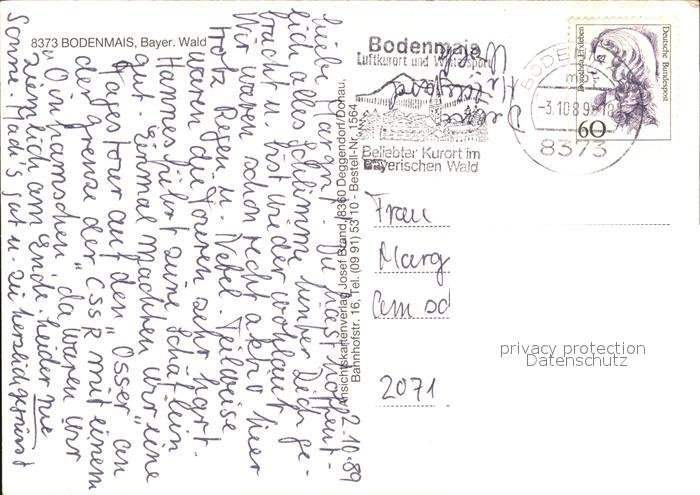 8373 BODENMAIS, Bayer. Wald
2.10.89
Liebe Margr! Du hast hoffent-
lich alles Schlimme hinter Dich ge-
bracht u. bist wieder wohlauf.
Wir waren schon recht aktiv hier
trotz Regen u. Nebel. Teilweise
waren die Touren sehr hart.
Hannes führt seine Schäflein
gut. Einmal machten wir eine
Tagestour auf den "Osser" an
der Grenze der CSSR mit einem
"O in hamschen", da waren wir
ziemlich am Ende. Leider nie
Sonne. Mach's gut u. sei herzlich gegrüsst
Deine Hildegard
Ansichtskartenverlag Josef Brand, 8360 Deggendorf/Donau,
Bahnhofstr. 16, Tel. (09 91) 53 10 - Bestell-Nr. 1564
Bodenmais
Luftkurort und Wintersport
Beliebter Kurort im
Bayerischen Wald
BODENMAIS
-3.10.89-18
8373
Deutsche Bundespost
60
Frau
Marg
Am sd
2071
privacy protection
Datenschutz